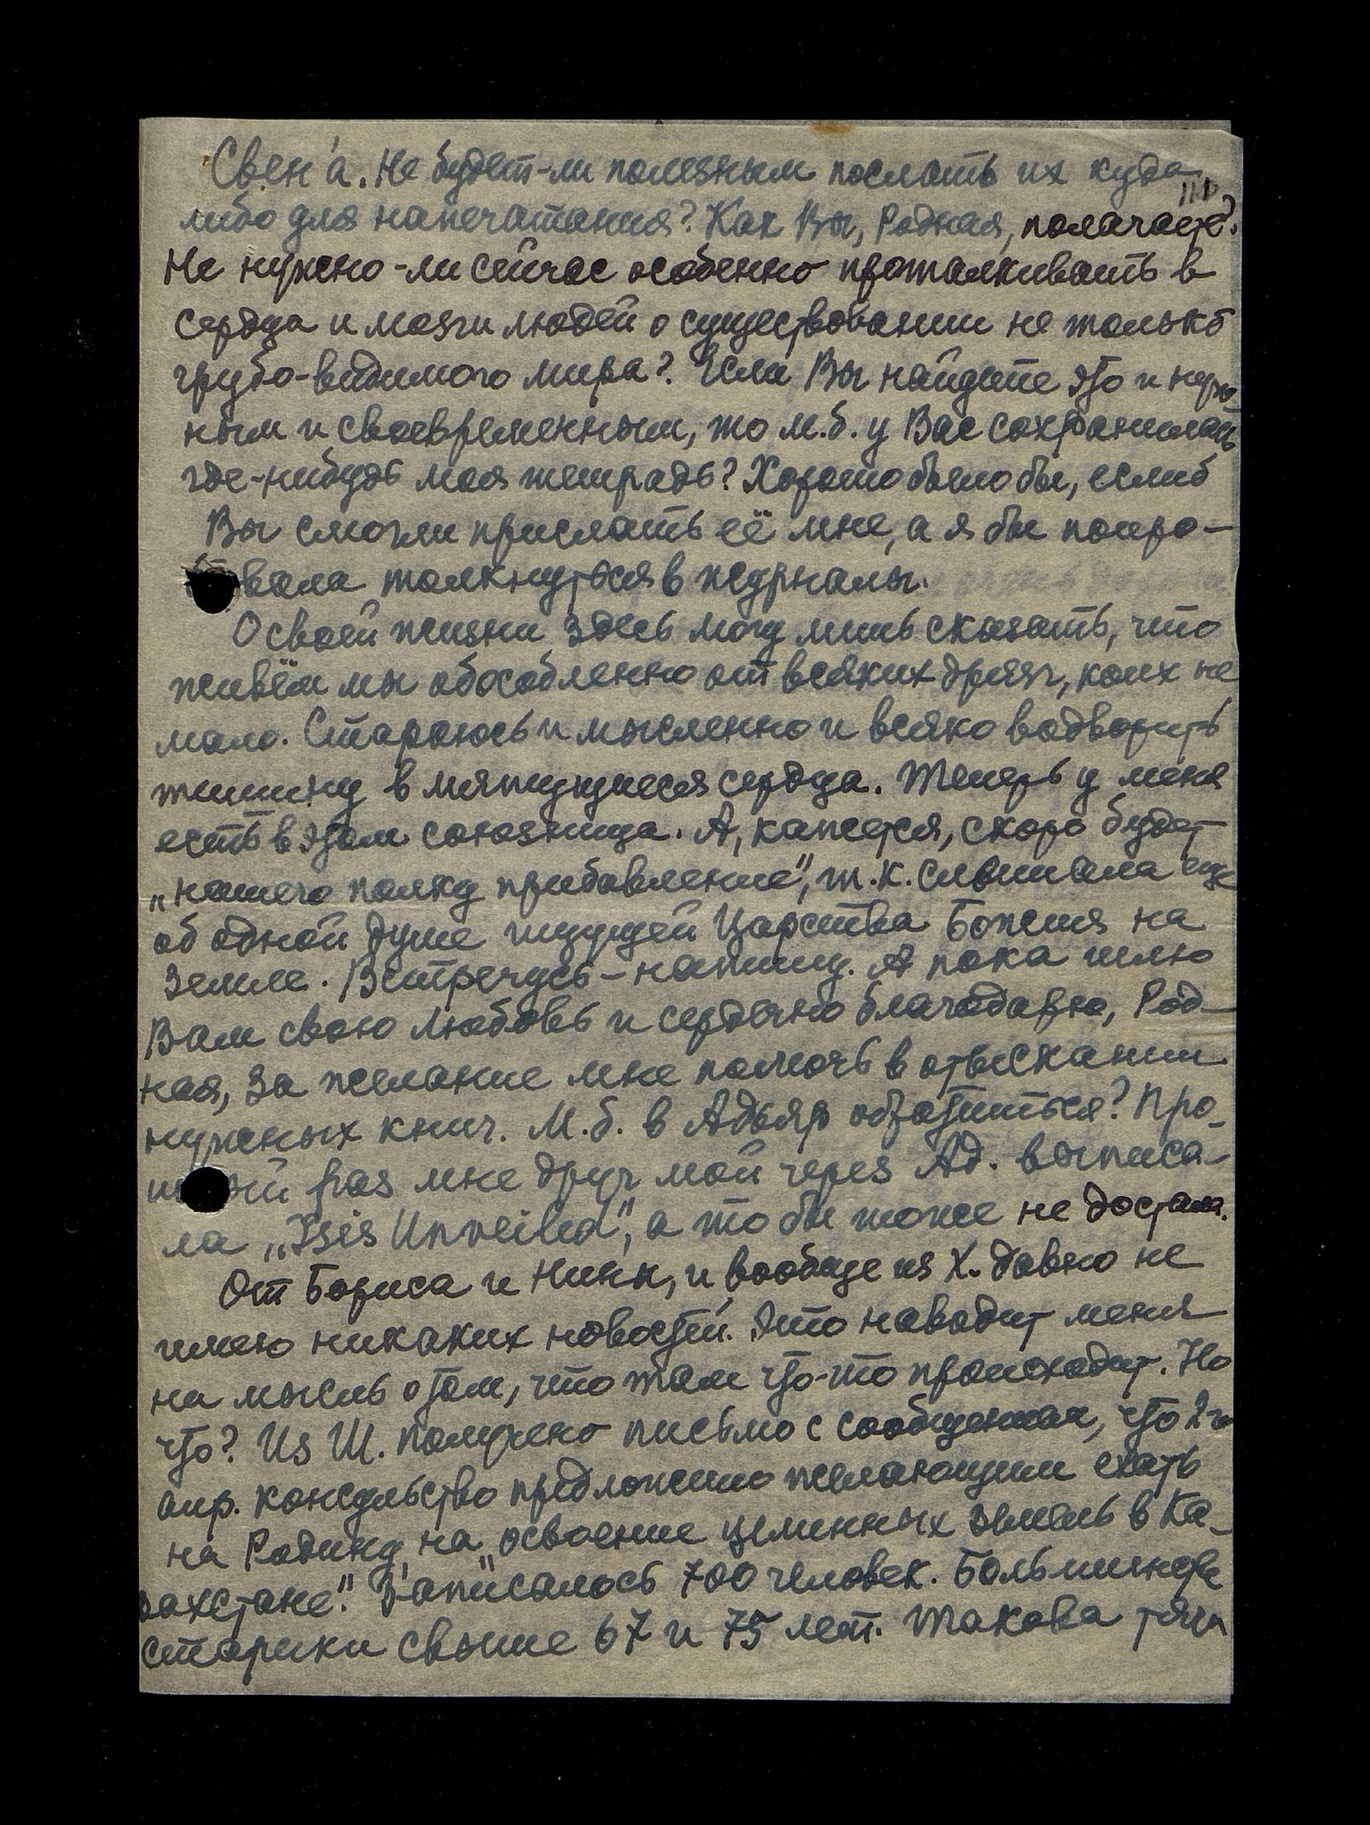 Свен'а. Не будет-ли полезным послать их куда
либо для напечатания? Как Вы, Родная, полагаете?
Не нужно-ли сейчас особенно проталкивать в
сердца и мозги людей о существовании не только
грубо-видимого мира? Если Вы найдете это и нуж-
ным и своевременным, то м.б. у Вас сохранилась
где-нибудь моя тетрадь? Хорошо было бы, еслиб
Вы смогли прислать её мне, а я бы попро-
бовала толкнуться в журналы.
О своей жизни здесь могу лишь сказать, что
живём мы обособленно от всяких дрязг, коих не
мало. Стараюсь и мысленно и всяко водворить
тишину в мятущиеся сердца. Теперь у меня
есть в этом союзница. А, кажется, скоро будет
„нашего полку прибавление", т.к. слышала еще
об одной душе ищущей Царства Божия на
Земле. Встречусь – напишу. А пока шлю
Вам свою любовь и сердечно благодарю, Род-
ная, за желание мне помочь в отыскании
нужных книг. М.б. в Адьяр обратиться? Про-
шлый раз мне друг мой через Ад. выписа-
ла „Isis Unveiled", а то бы тоже не достала.
От Бориса и Нины, и вообще из Х. давно не
имею никаких новостей. Это наводит меня
на мысль о том, что там что-то происходит. Но
что? Из Ш. получено письмо с сообщением, что 2-го
апр. консульство предложило желающим ехать
на Родину на „освоение целинных земель в Ка-
захстане". Записалось 700 человек. Большинство
старики свыше 67 и 75 лет. Такова тяга